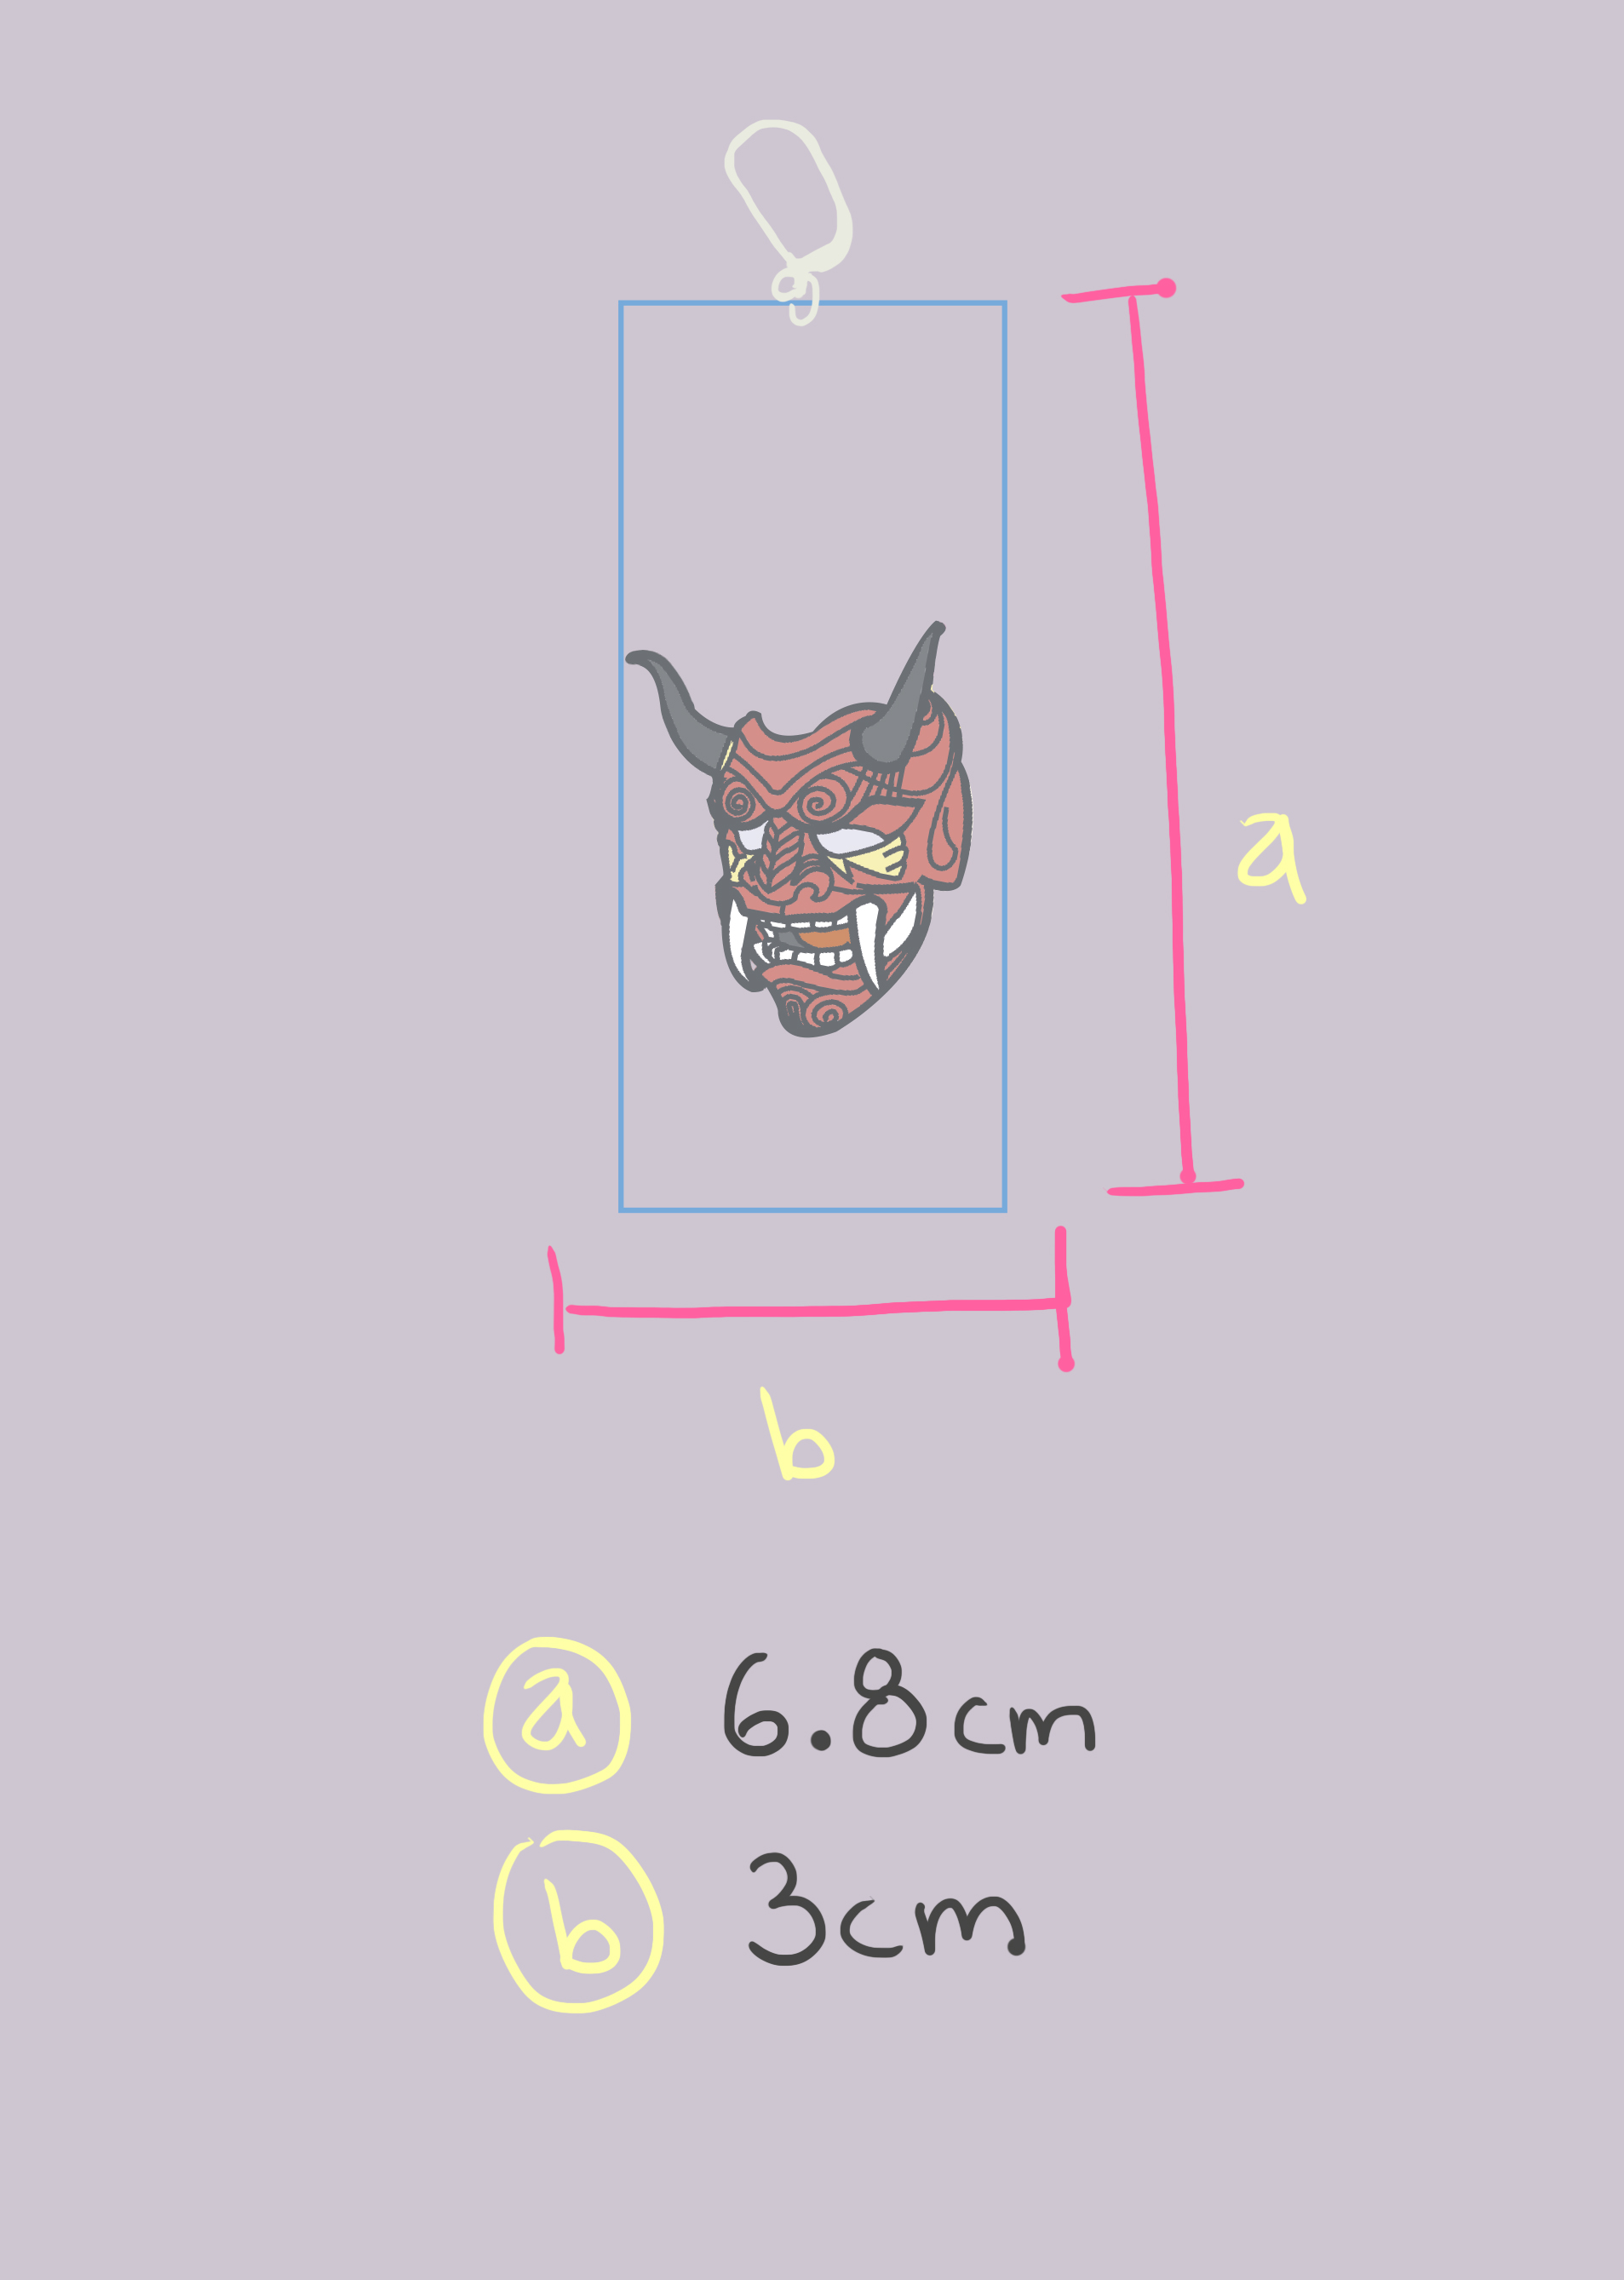 a
b
a 6.8cm
b 3cm